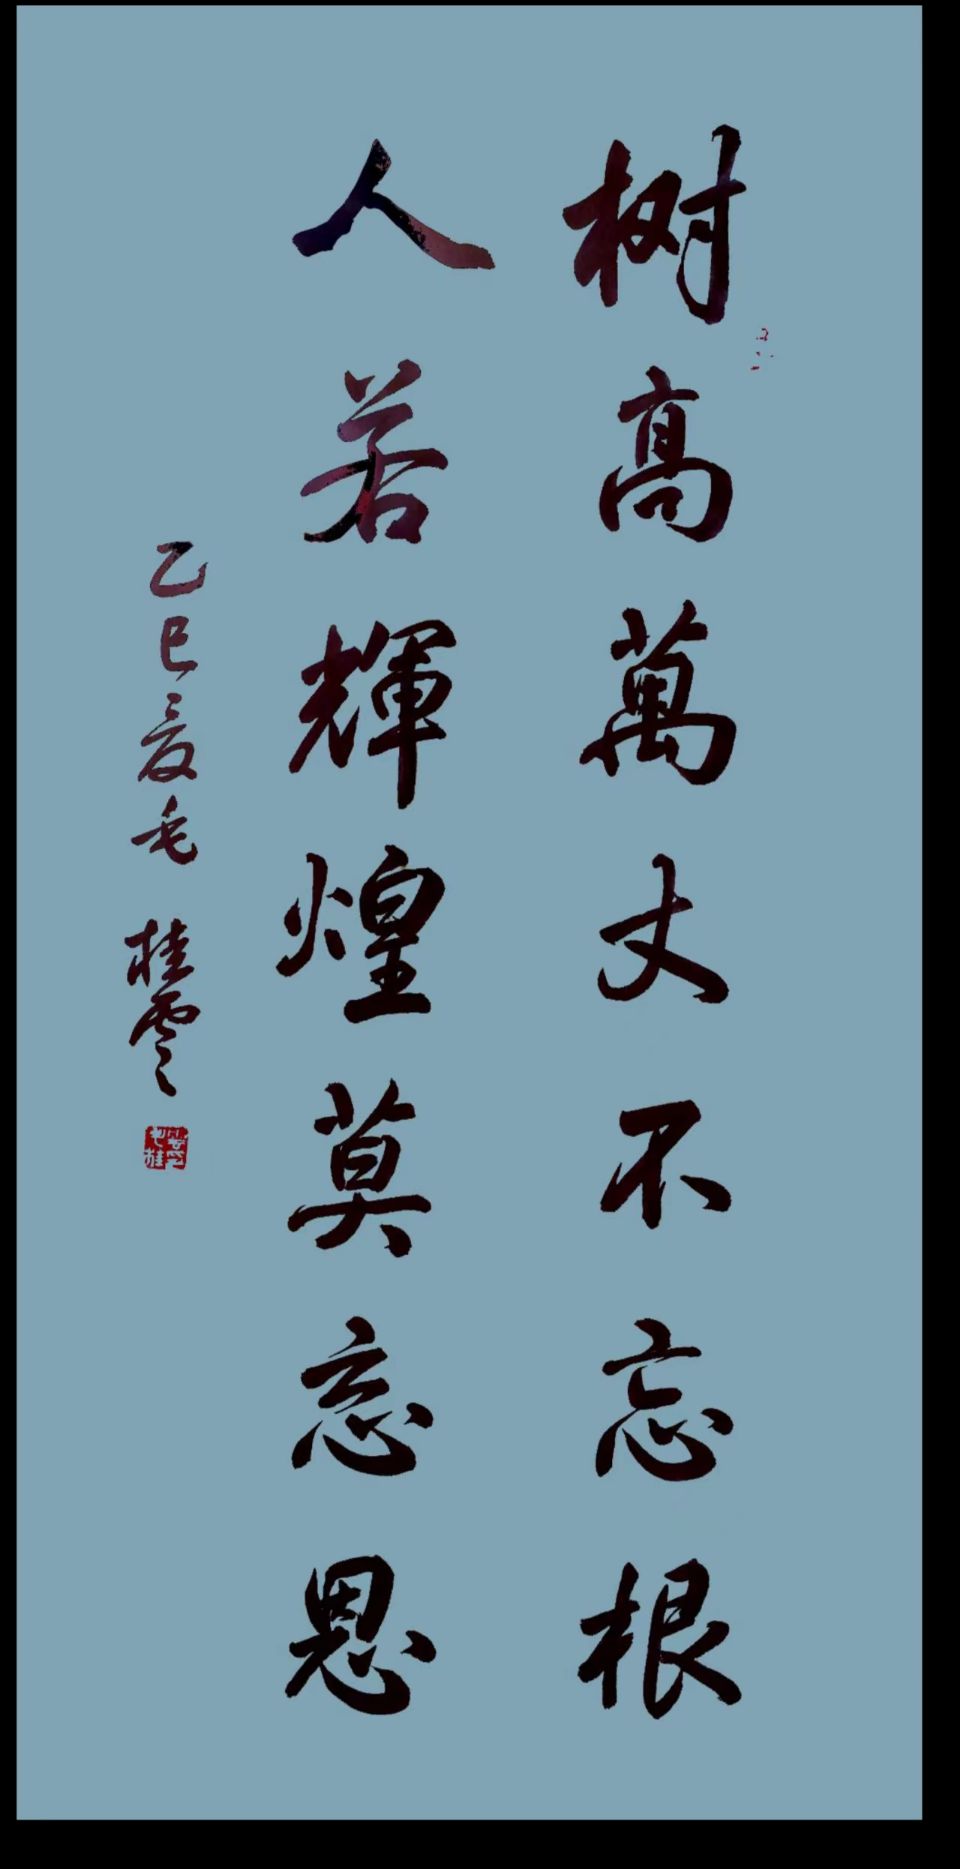 树高萬丈不忘根
人若輝煌莫忘恩
乙巳夏毛桂雲